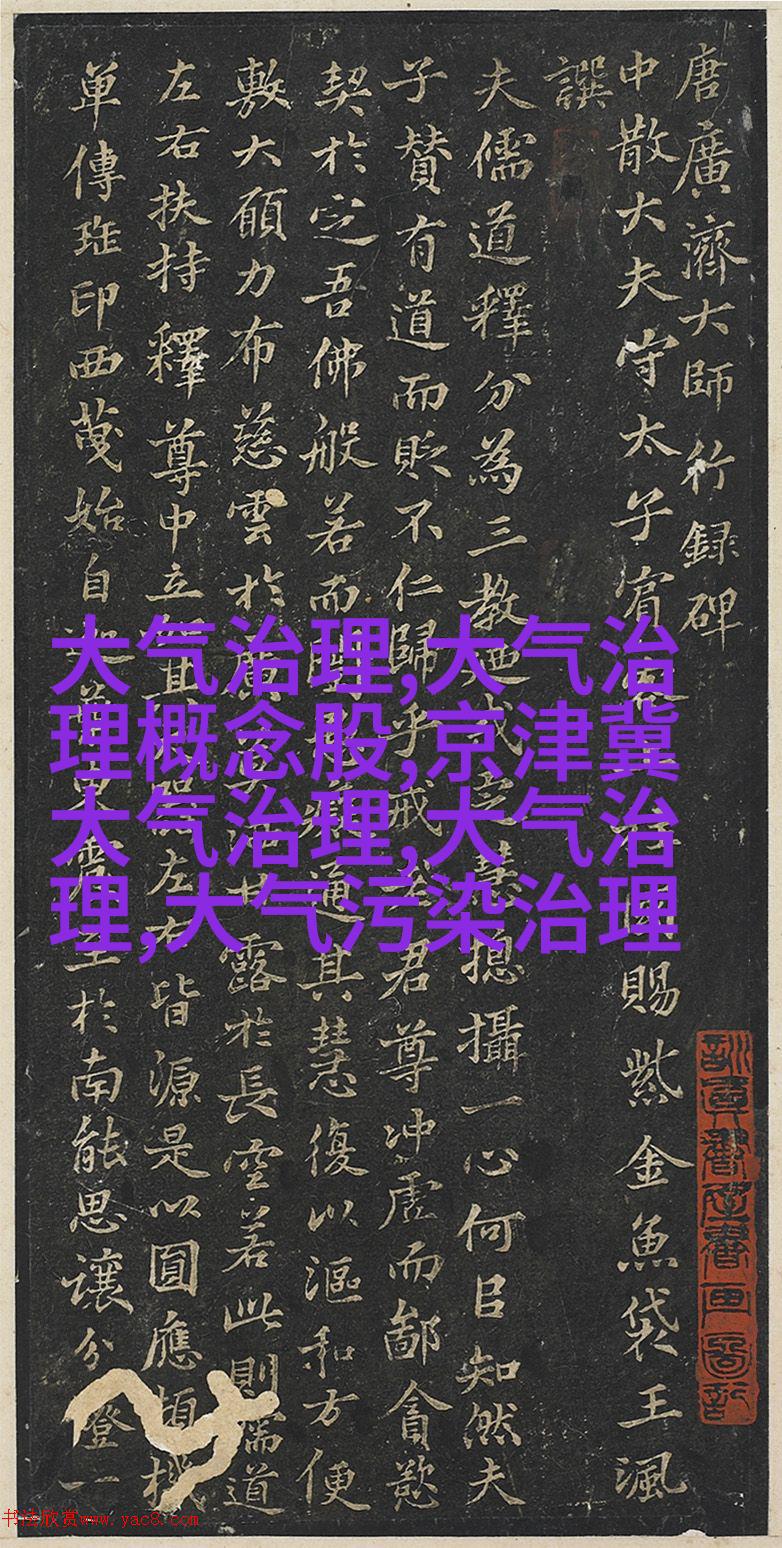 唐廣濟大師行録碑
中散大夫守太子賓賜紫金魚袋王渢
譔
夫儒道釋分為三教定慧揔攝一心何㠯知然夫
子賛有道而貶不仁歸乎戒君尊冲虛而鄙貪慾
契於定吾佛般若而通其慧復以漚和方便
敷大願力布慈雲於廣露於長空若此則儒道
左右扶持釋尊中立左右皆源是以圓應頓機
單傳印西始自至於南能思讓分燈一
大气治理,大气治
理概念股,京津冀
大气治理,大气治
理,大气污染治理
书法欣赏www.yac8.com